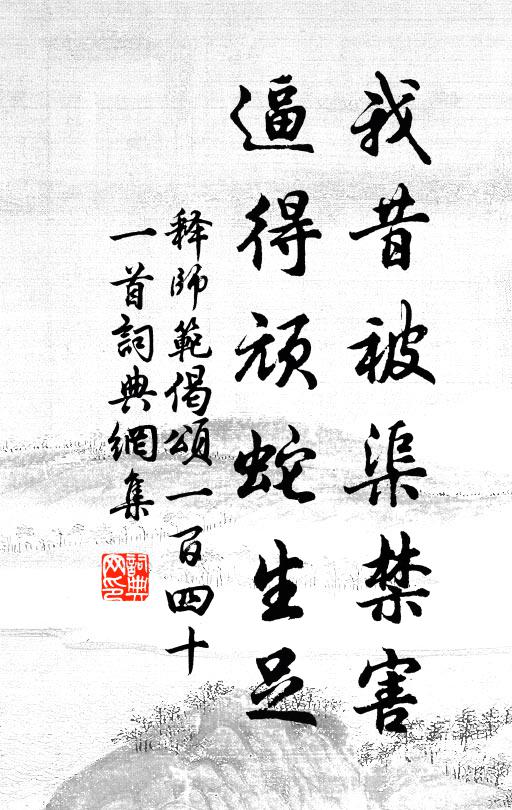 我昔被渠禁害
逼得顽蛇生足
释师範偈頌一百四十
一首詞典網集
詞典
网印